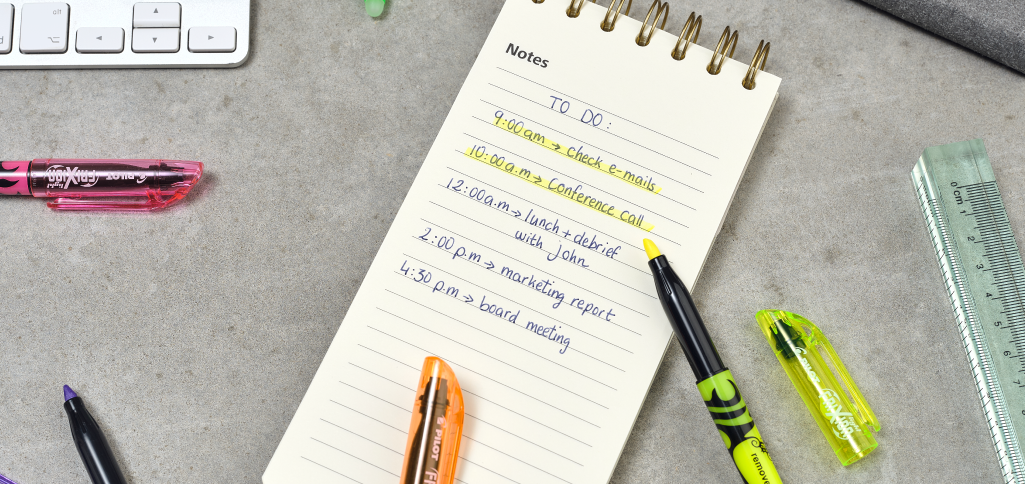 off
Notes
TO DO:
9:00am → check e-mails
10:00a.m → Conference call
12:00a.m → lunch + debrief
with John
2:00 p.m → marketing report
4:30 p.m → board meeting
PILOT
FRIXION
light
PILOT
PILOT
FRIXION
remove
0 cm 1
2
3
4
5
6
7